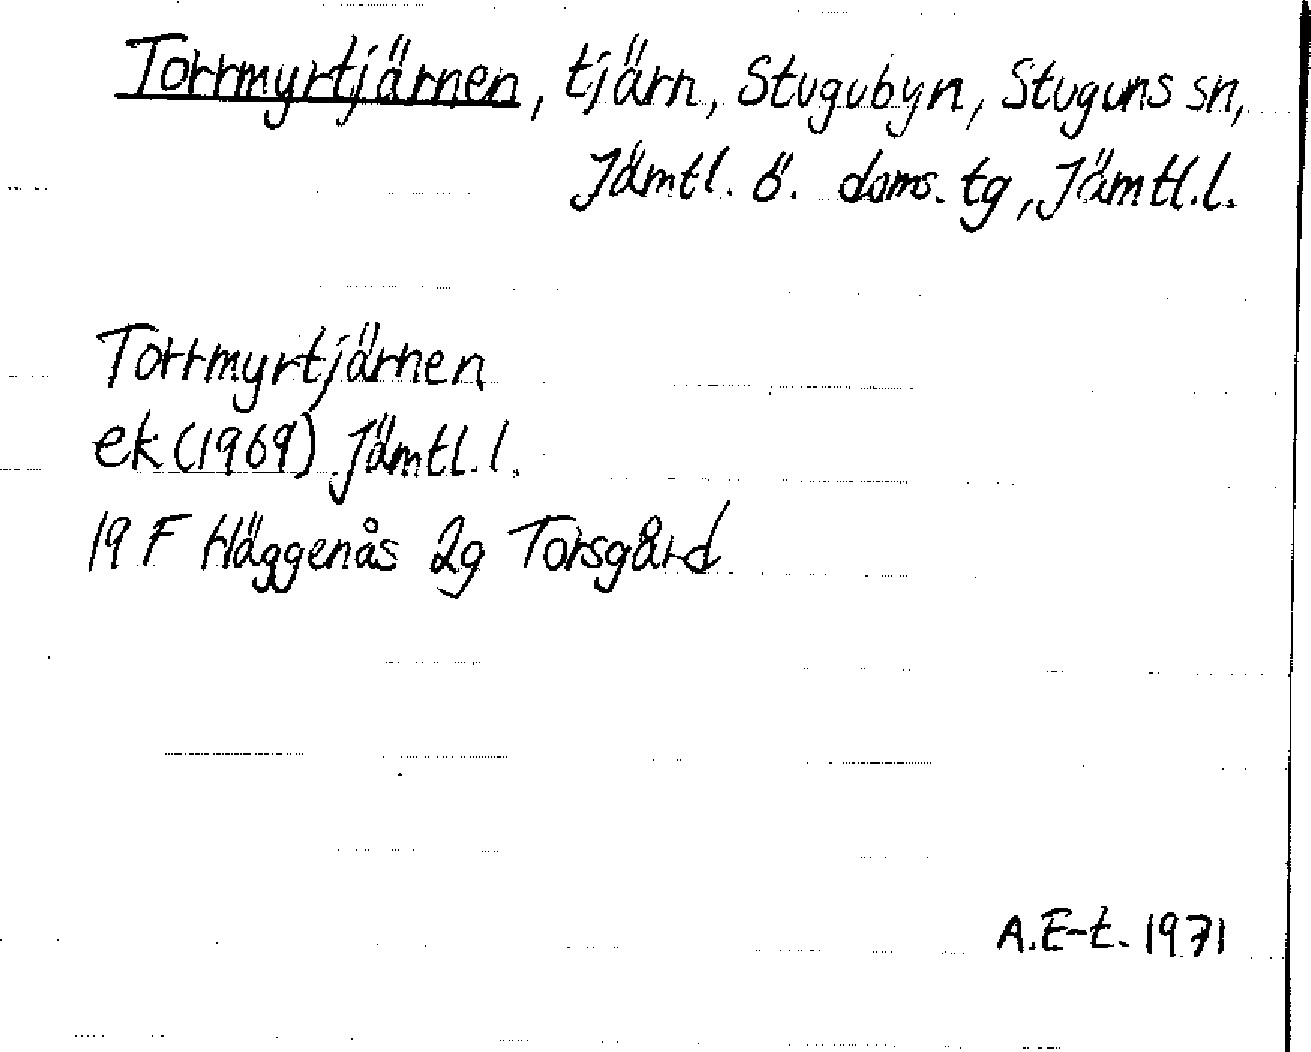 Torrmyrtjärnen, tjärn, Stugubyn, Stuguns sn,
Jämtl. ö. doms. tg, Jämtl.l.
Torrmyrtjärnen
ek (1969) Jämtl.l.
19 F Häggenås 2g Torsgård
A.E-t. 1971